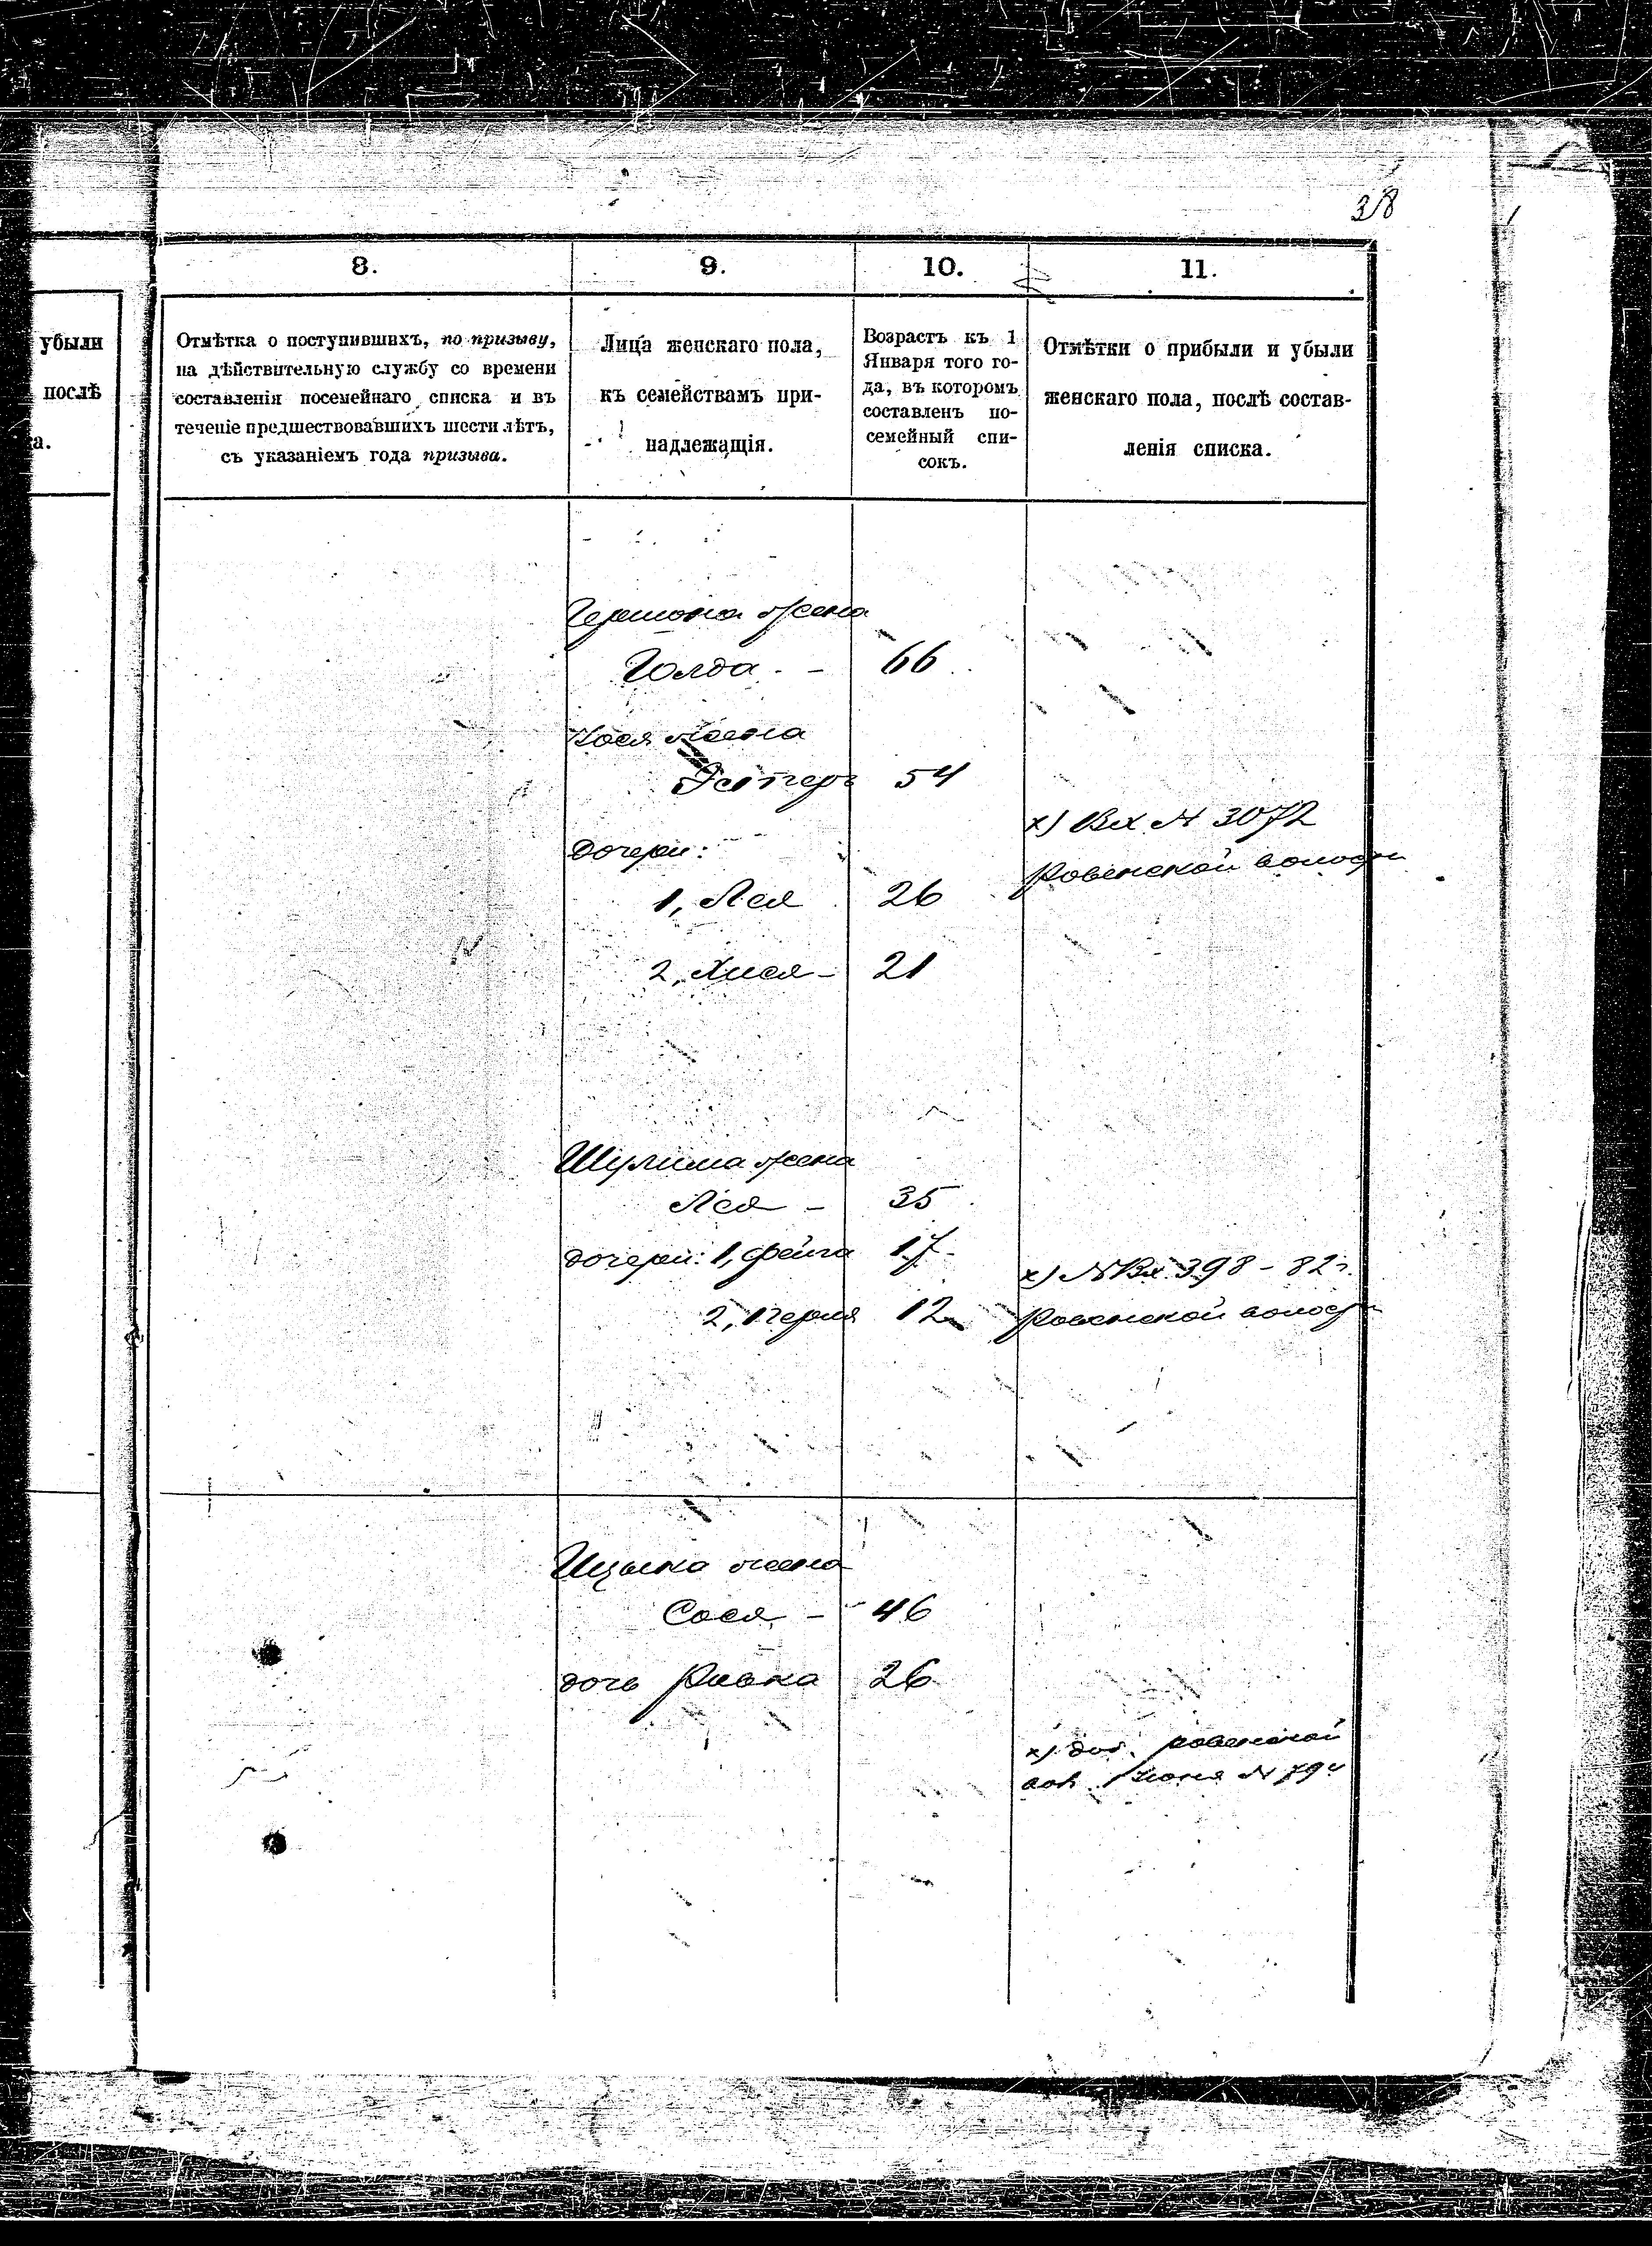 38
убыли
послѣ
а.
8.
Отмѣтка о поступившихъ, по призыву,
на дѣйствительную службу со времени
составленія посемейнаго списка и въ
теченіе предшествовавшихъ шести лѣтъ,
съ указаніемъ года призыва.
9.
Лица женскаго пола,
къ семействамъ при-
надлежащія.
10.
Возрастъ къ 1
Января того го-
да, въ которомъ
составленъ по-
семейный спи-
сокъ.
11.
Отмѣтки о прибыли и убыли
женскаго пола, послѣ состав-
ленія списка.
Гершона жена
Голда - 66
жена
Эстеръ 54
х) Вх № 3072
Ровенской волости
дочери:
1, Лея 26
2, Хися - 21
Шулима жена
Лея - 35
дочери: 1, Фейга 17
х) № Вх. 398 - 82 г.
2, Перля 12
Ровенской волости
Ицька жена
Сося - 46
дочь Ривка 26
х) ровенской
№ 794